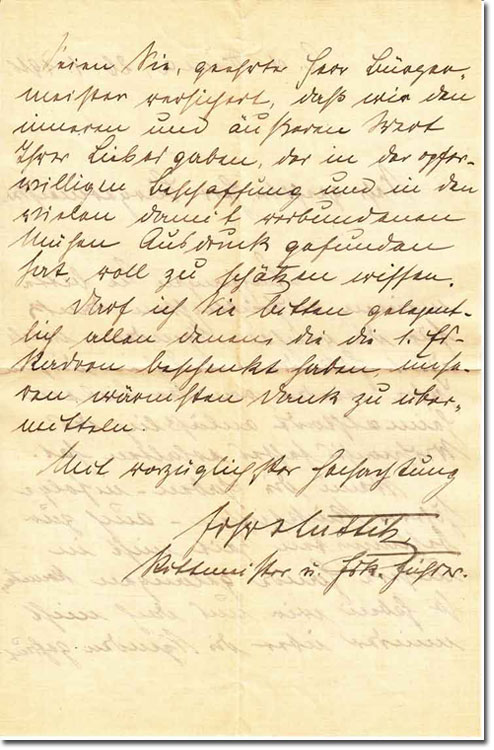 Seien Sie, geehrter Herr Bürger-
meister versichert, daß wir den
inneren und äußeren Wert
Ihrer Liebesgaben, der in der opfer-
willigen Beschaffung und in den
vielen damit verbundenen
Mühen Ausdruck gefunden
hat, voll zu schätzen wissen.
Darf ich Sie bitten gelegent-
lich allen denen, die die 1. Es-
kadron beschenkt haben, unse-
ren wärmsten Dank zu über-
mitteln.
Mit vorzüglichster Hochachtung
Rittmeister u. Esk. Führer.